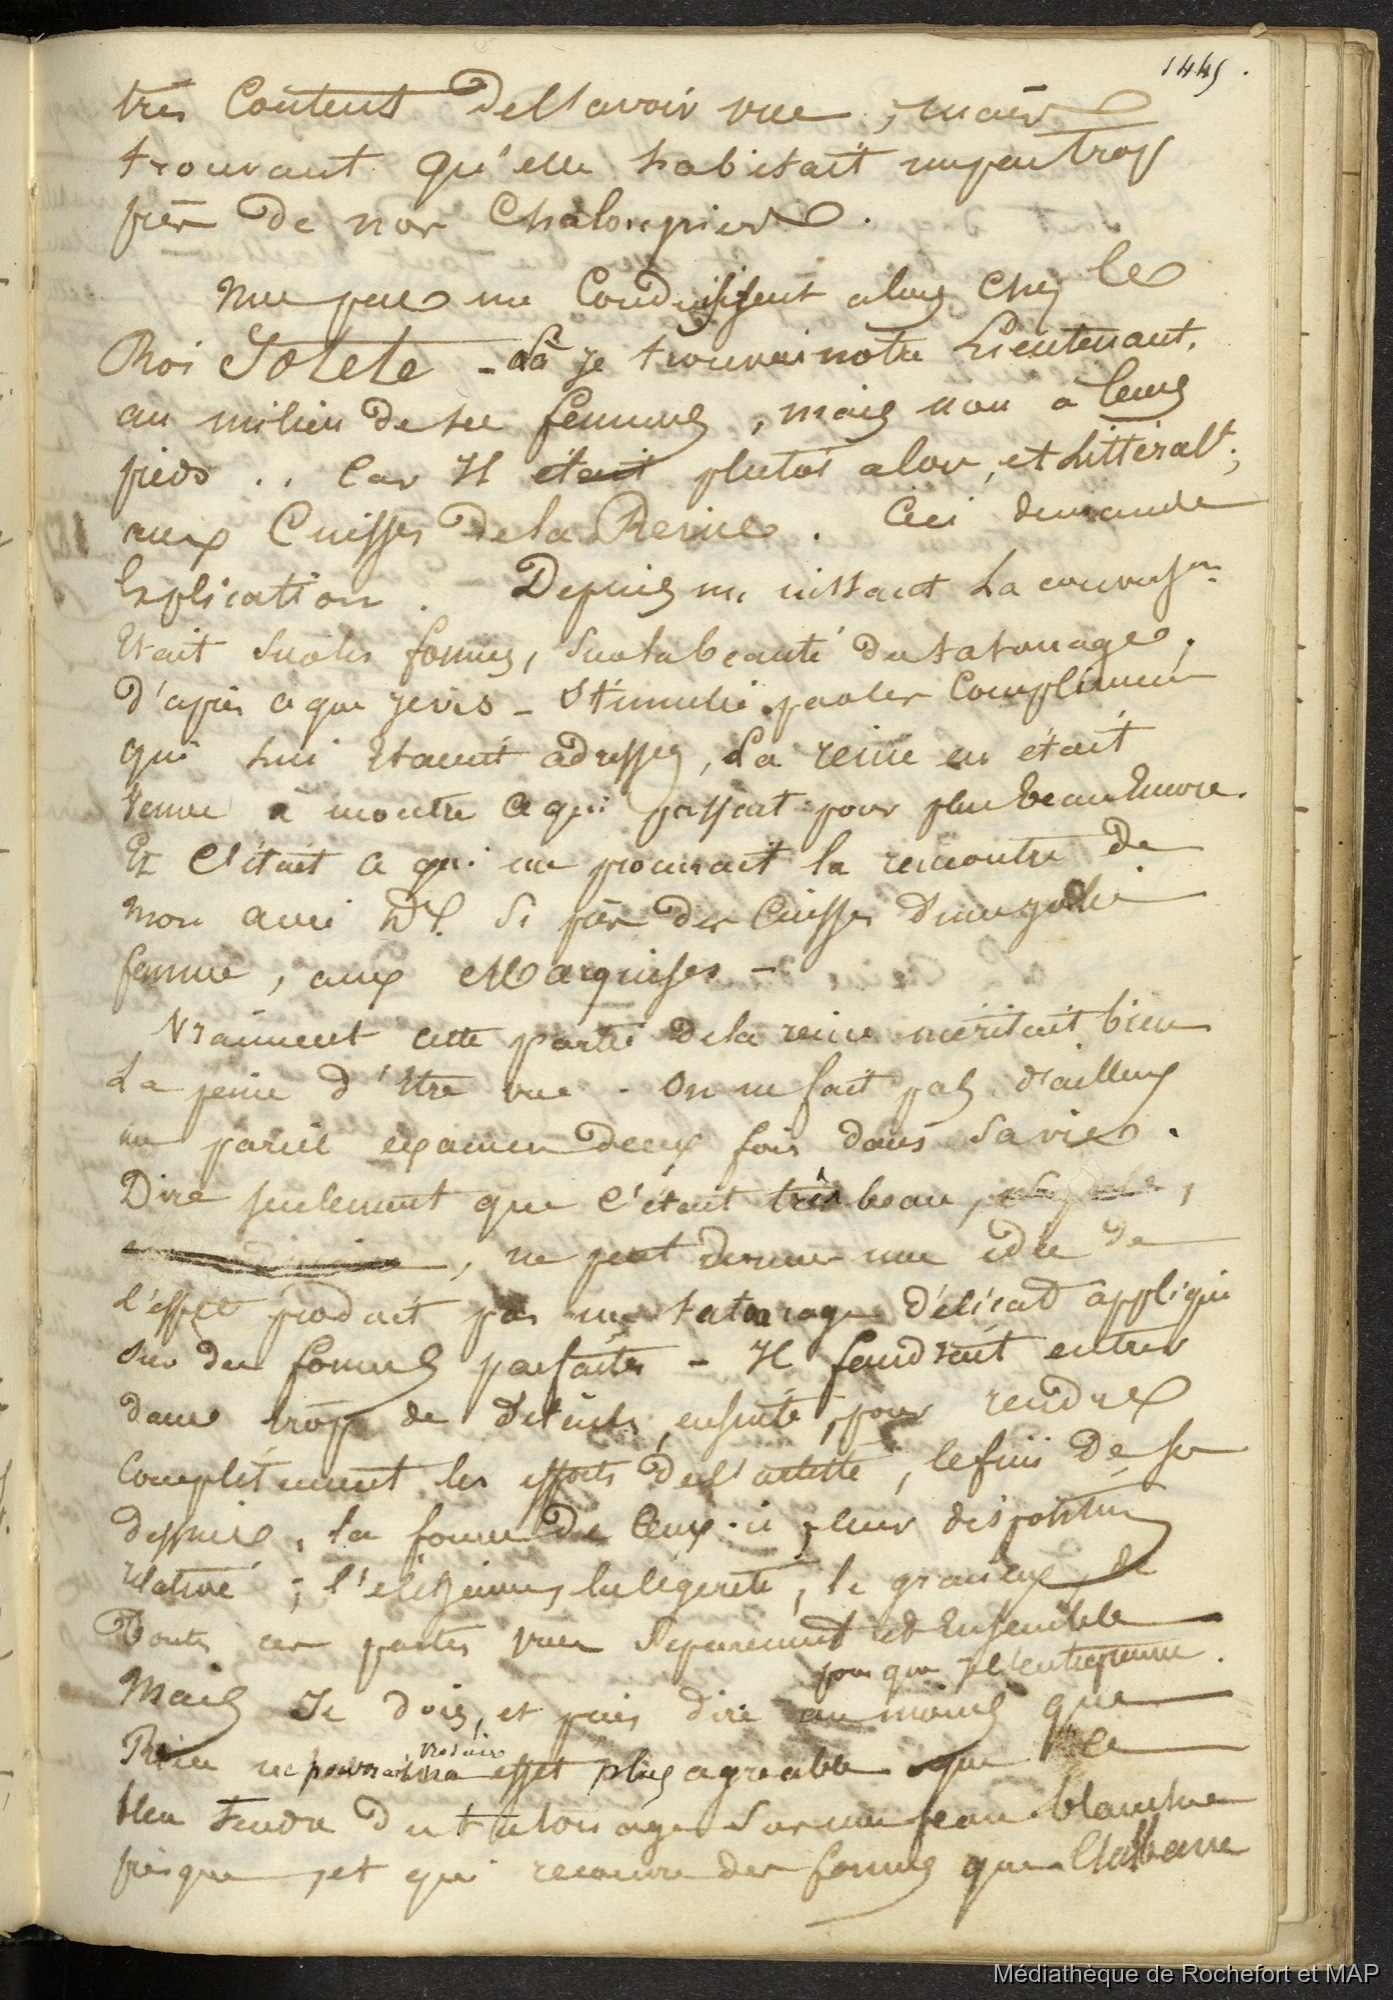 1445.
très Contents De l'avoir vue ; mais
trouvant qu'elle habitait un peu trop
près de nos Chaloupiers.
Mes pas me Conduisirent alors Chez le
Roi Iotete - là je trouvai notre Lieutenant,
au milieu de ses femmes, mais non à leurs
pieds .. Car Il était plutôt alors, et Littéralt;
aux Cuisses De la Reine. Ceci demande
Explication. Depuis un instant La converson
Etait sur les formes, sur la beauté du tatouage,
D'après ce que je vis - Stimulée par les Complimens
qui lui étaient adressés, La reine en était
venue à montrer Ce qui passait pour plus beau Encore.
Et C'était ce qui me procurait la rencontre De
Mon ami Dl. Si près des Cuisses D'une jolie
femme, aux Marquises -
Vraiment cette partie De la reine méritait bien
La peine d'Etre vue. On ne fait pas d'ailleurs
un pareil examen Deux fois dans Sa vie.
Dire seulement que C'était très beau,
, ne peut donner une idée de
L'effet produit par un tatouage Délicat appliqué
sur des formes parfaites - Il faudrait entrer
dans trop de Détails, ensuite, pour rendre
Complètement les efforts De l'artiste, le fini De ses
Dessins, la forme De Ceux-ci, leur disposition
relative ; l' la légèreté, le gracieux de
Toutes ces parties vues Séparément et Ensemble
pour que je l'entreprenne.
Mais Je dois, et puis dire au moins que
Rien ne pourrait produire effet plus agréable que le
bleu Tendre Du tatouage Sur une peau blanche
presque, et qui recouvre des formes que